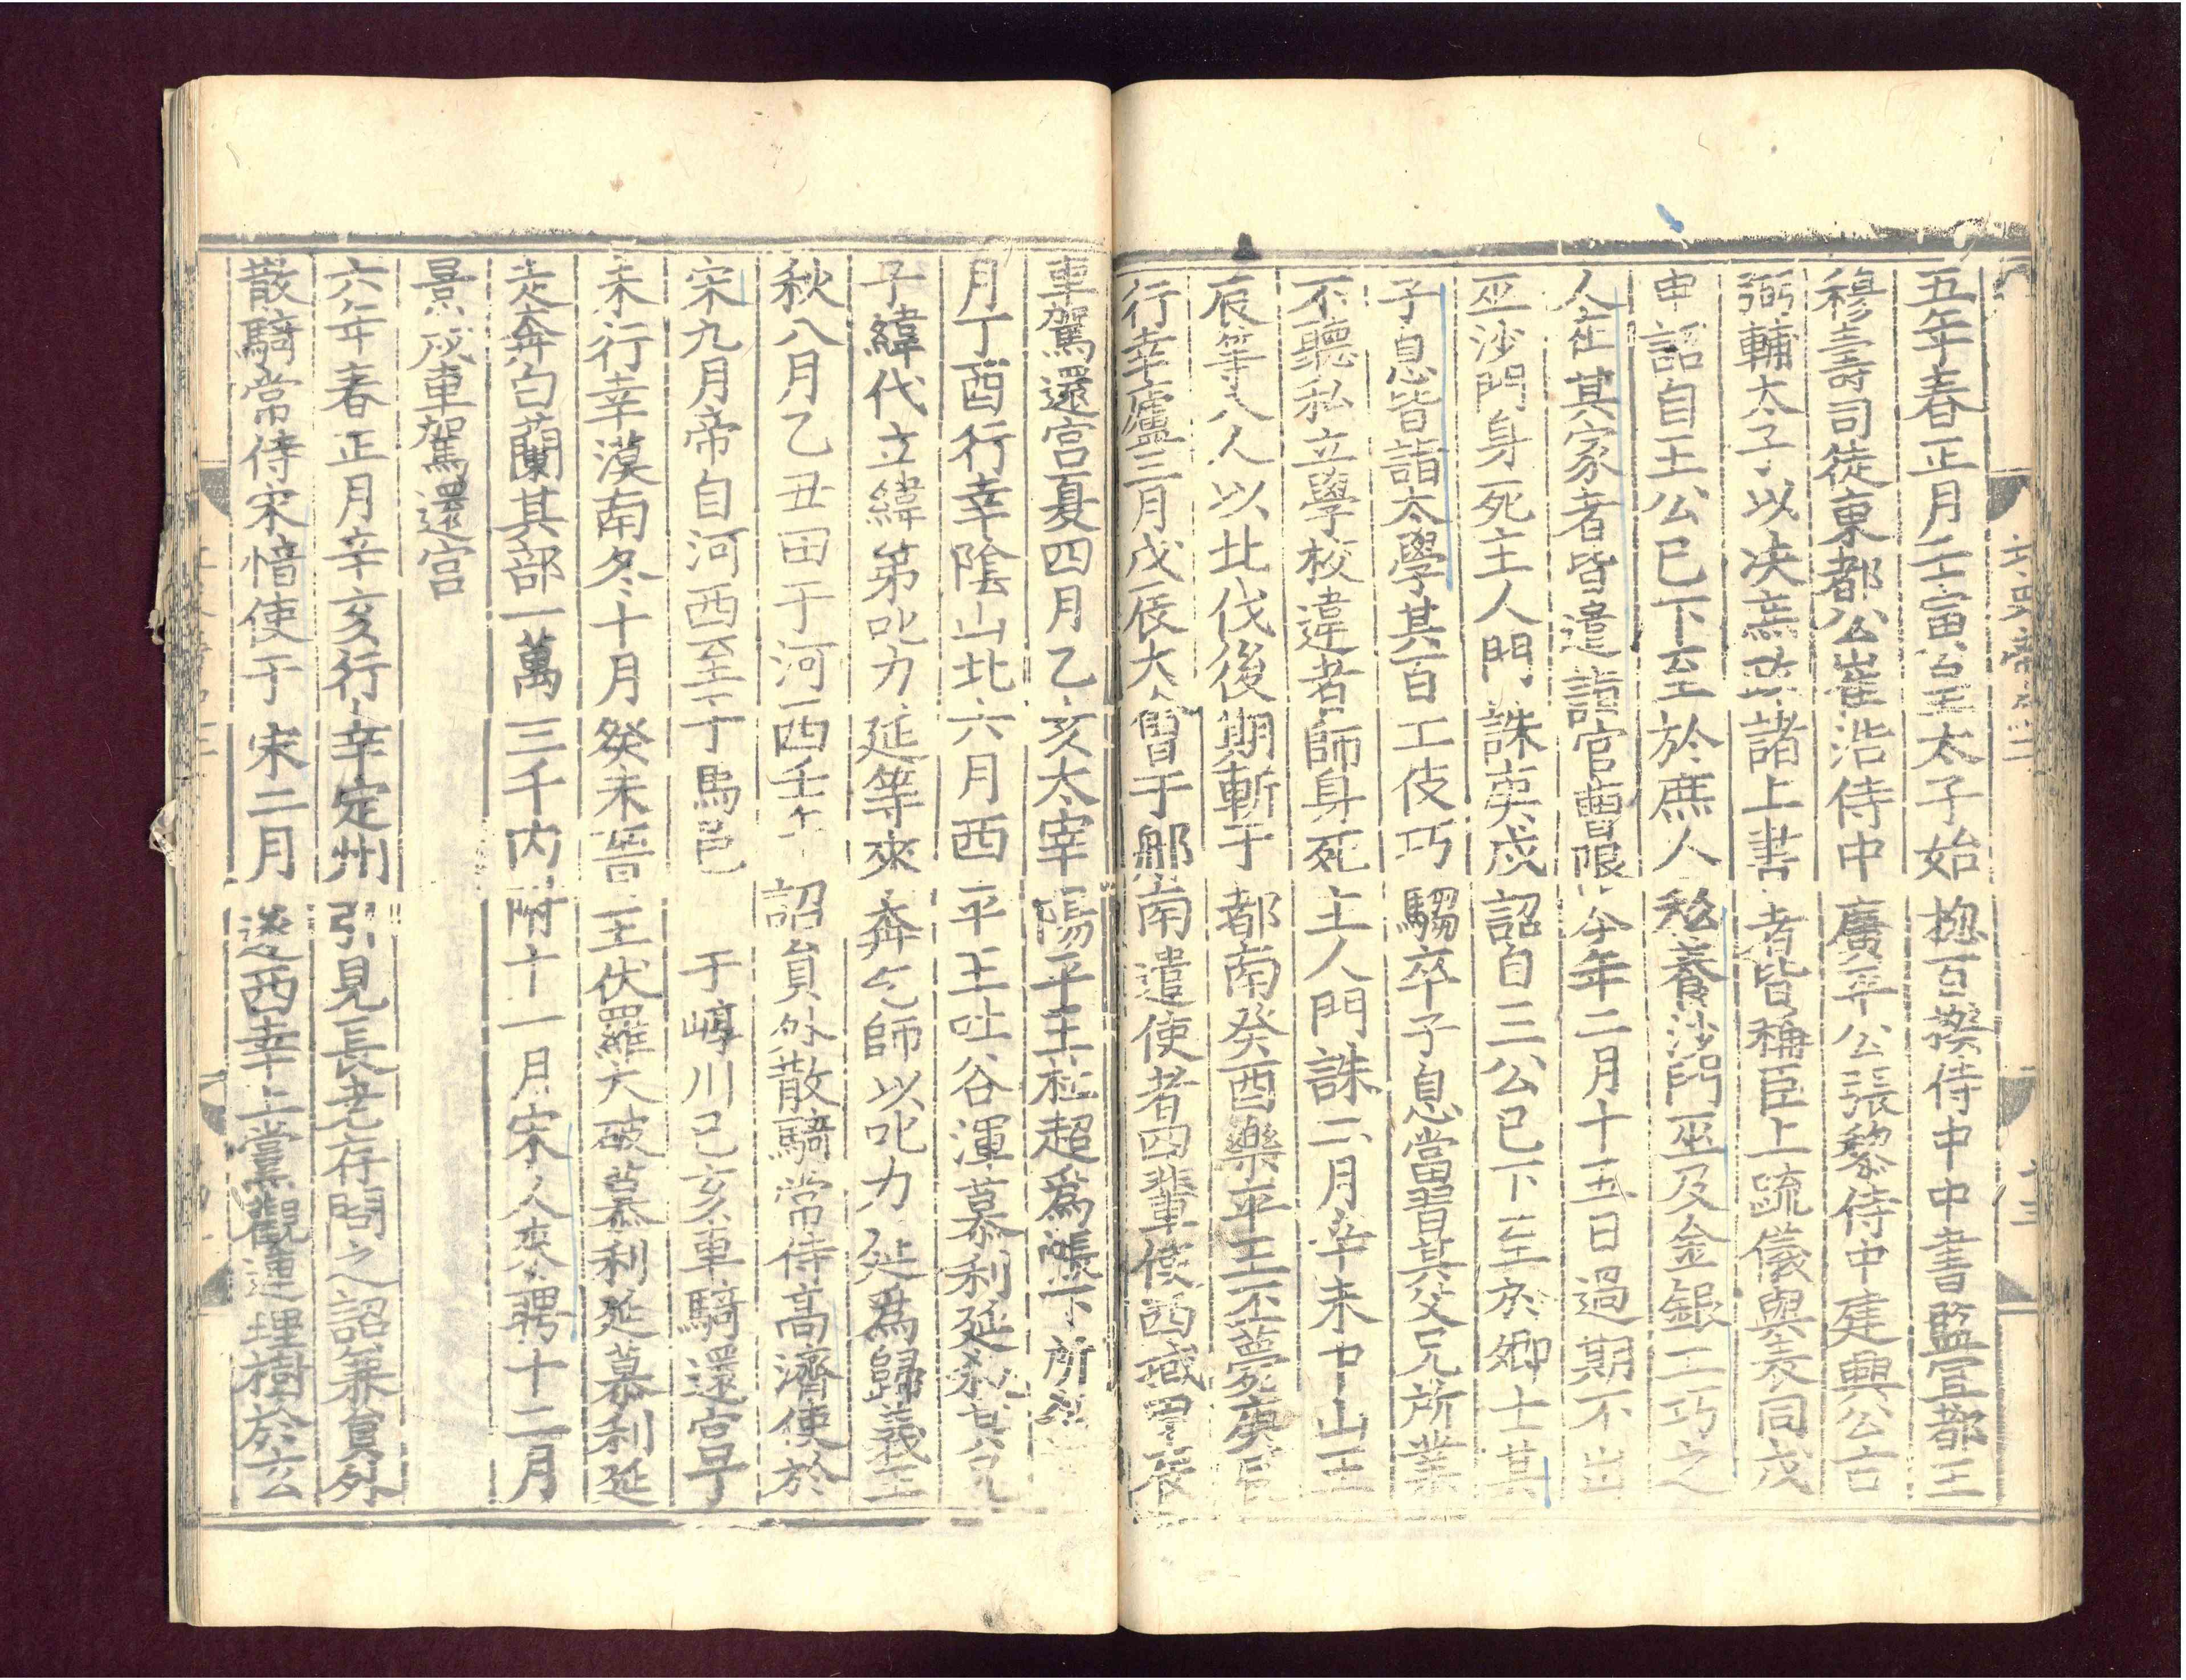 五年春正月壬寅皇太子始總百揆侍中中書監宜都王
穆壽司徒東都公崔浩侍中廣平公張黎侍中建興公古
弼輔太子以决庶政諸上書者皆稱臣上疏儀與表同戊
申詔自王公已下至於庶人私養沙門巫及金銀工巧之
人在其家者皆遣詣官曹限今年二月十五日過期不出
巫沙門身死主人門誅庚戌詔自三公已下至於卿士其
子息皆詣太學其百工伎巧騶卒子息當習其父兄所業
不聽私立學校違者師身死主人門誅二月辛未中山王
辰等八人以北伐後期斬于都南癸酉樂平王丕薨庚辰
行幸廬三月戊辰大會于那南遣使者四輩使西域甲辰
車駕還宮夏四月乙亥太宰陽平王杜超爲帳下所
月丁酉行幸陰山北六月西平王吐谷渾慕利延殺其兄
子緯代立緯弟叱力延等來奔乞師以叱力延爲歸義王
秋八月乙丑田于河西壬午詔員外散騎常侍高濟使於
宋九月帝自河西至于馬邑于崞川己亥車騎還宮丁
未行幸漠南冬十月癸未晉王伏羅大破慕利延慕利延
走奔白蘭其部一萬三千內附十一月宋人來聘十二月
景戌車駕還宮
六年春正月辛亥行幸定州引見長老存問之詔兼員外
散騎常侍宋愔使于宋二月遂西幸上黨觀連理樹於玄